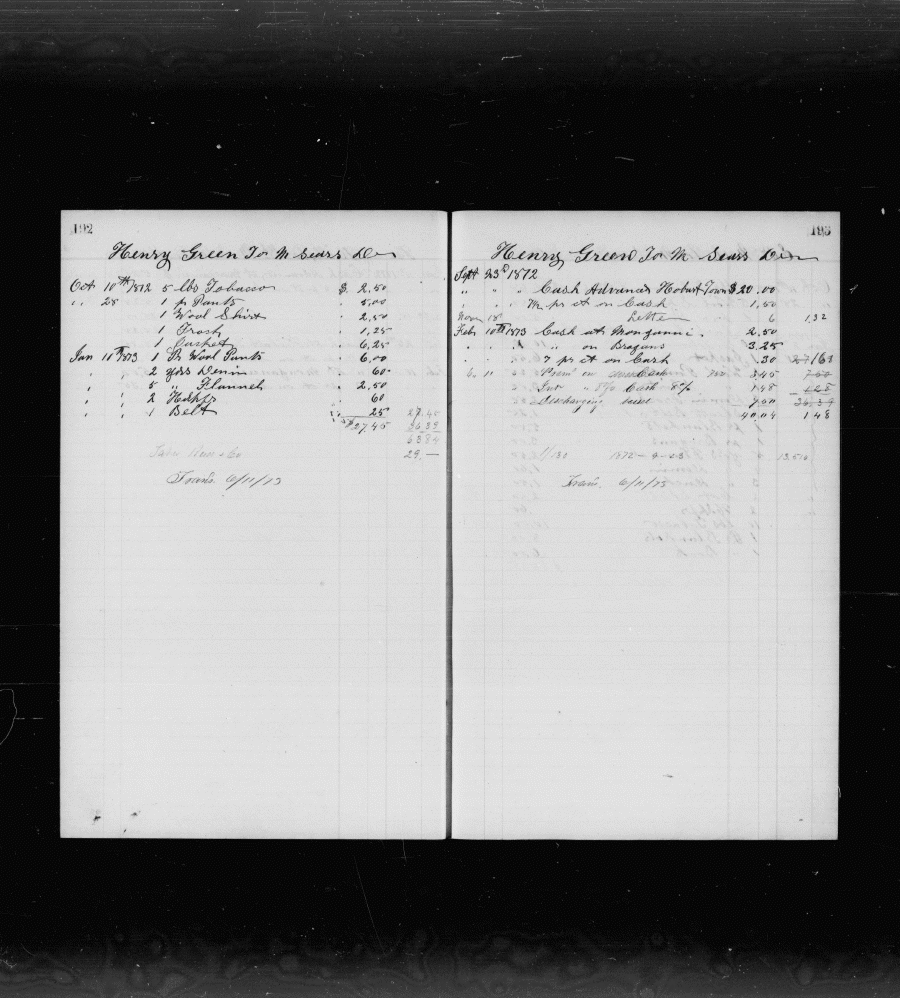 192
Henry Green To M Sears Dr
Oct 10th 1872 5 lbs Tobacco $ 2.50
" 28 1 pr Pants 5.00
1 Wool Shirt 2.50
1 Frock 1.25
1 Jacket 6.25
Jan 10th 1873 1 Pr Wool Pants 6.00
" " 2 yds Denim 60
" " 5 " Flannel 2.50
" " 2 Hdkfs 60
" " 1 Belt 25 27.45
$27.45 36.39
63.84
29.—
Trans. 6/11/73
193
Henry Green To M Sears Dr
Sept 23d 1872
" " " Cash Advanced Hobart Town $20.00
" " " 7½ pr ct on Cash 1.50
Nov 18 Letter 6 1.32
Feb 10th 1873 Cash at Monganni. 2.50
" " " on Bragans 3.25
" " 7 pr ct on Cash .30
Discharging
40.04 1.48
1/180 1872-9-23
Trans. 6/11/73